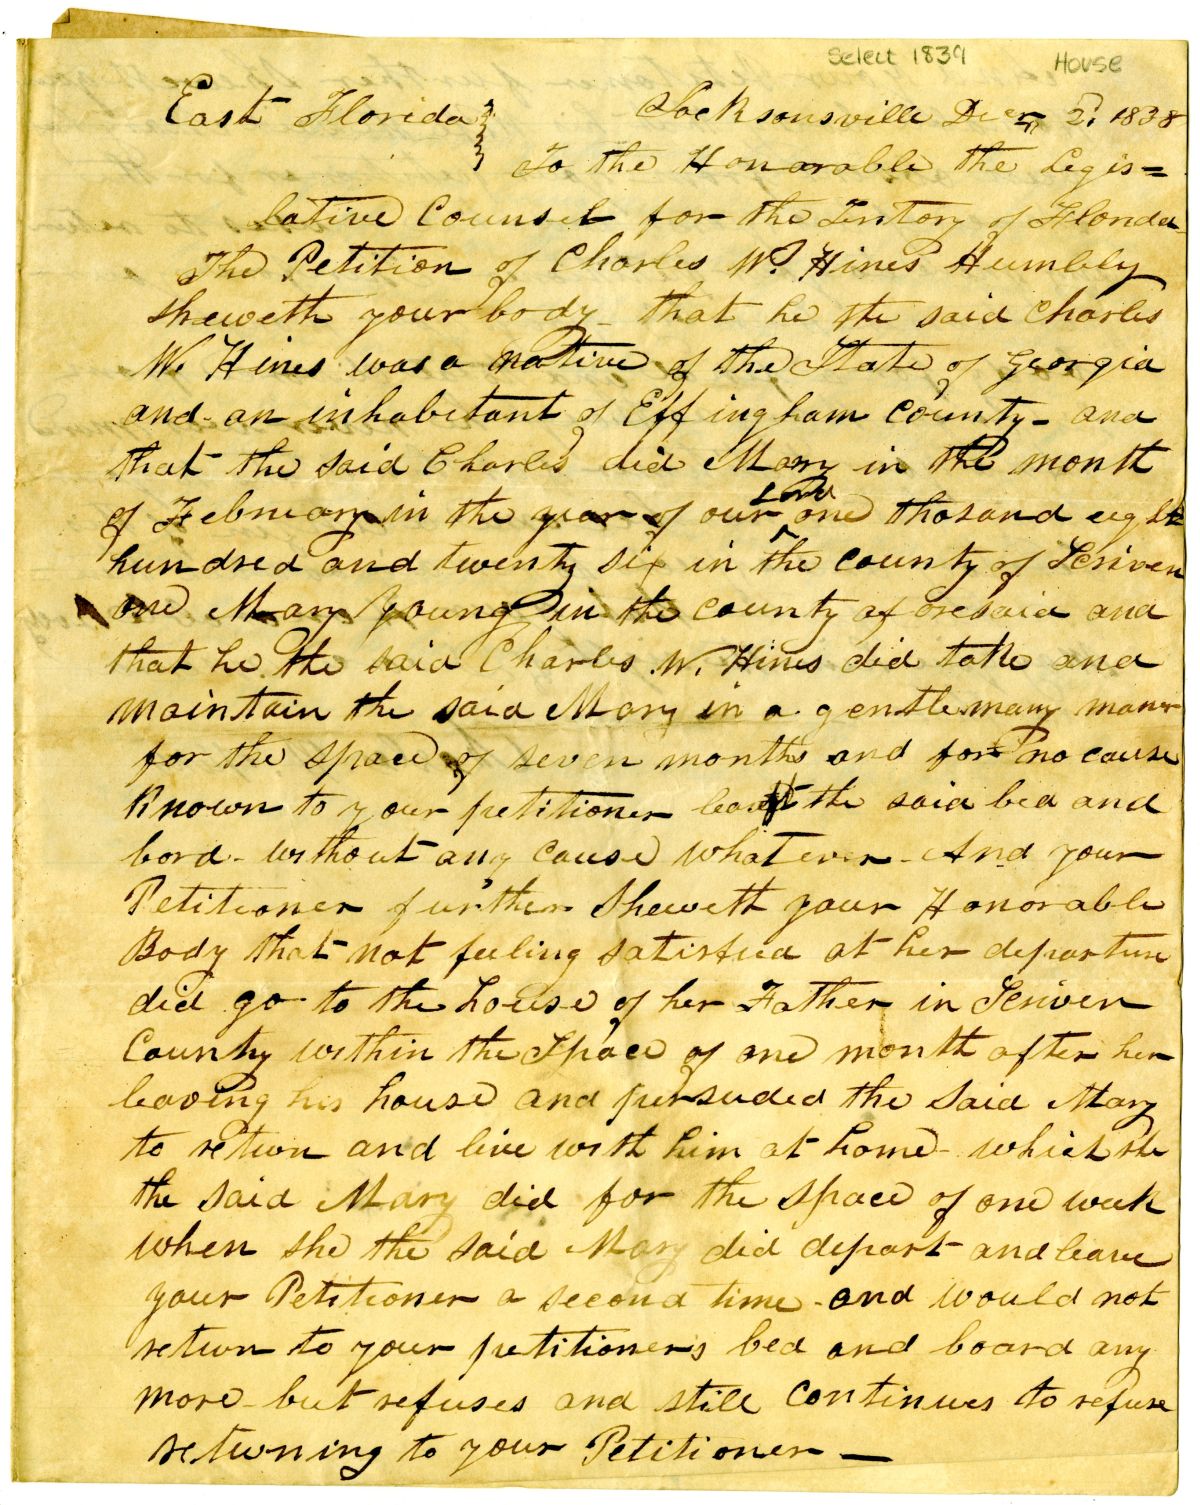 Select 1839 House
East Florida Jacksonsville Decr 2d 1838
To the Honarable the Legis=
lative Counsel for the Teritory of Florida
The Petition of Charles W. Hines Humbly
sheweth your body - that he the said Charles
W. Hines was a native of the State of Georgia
and - an inhabetant of Effingham County - and
that the said Charles did Mary in the month
of February in the year of our Lord one thosand eight
hundred and twenty six in the county of Scriven
one Mary Young in the county aforesaid and
that he the said Charles W. Hines did take and
maintain the said Mary in a gentlemany maner
for the space of seven months and for no cause
known to your petitioner leave the said bed and
bord - without any cause whatever - And your
Petitioner further Sheweth your Honorable
Body that not feeling satisfied at her departure
did go to the house of her Father in Scriven
County within the Space of one month after her
leaving his house and pursuded the said Mary
to return and live with him at home - which she
the said Mary did for the space of one week
when she the said Mary did depart and leave
your Petitioner a second time - and would not
return to your petitioners bed and board any
more - but refuses and still continues to refuse
returning to your Petitioner —